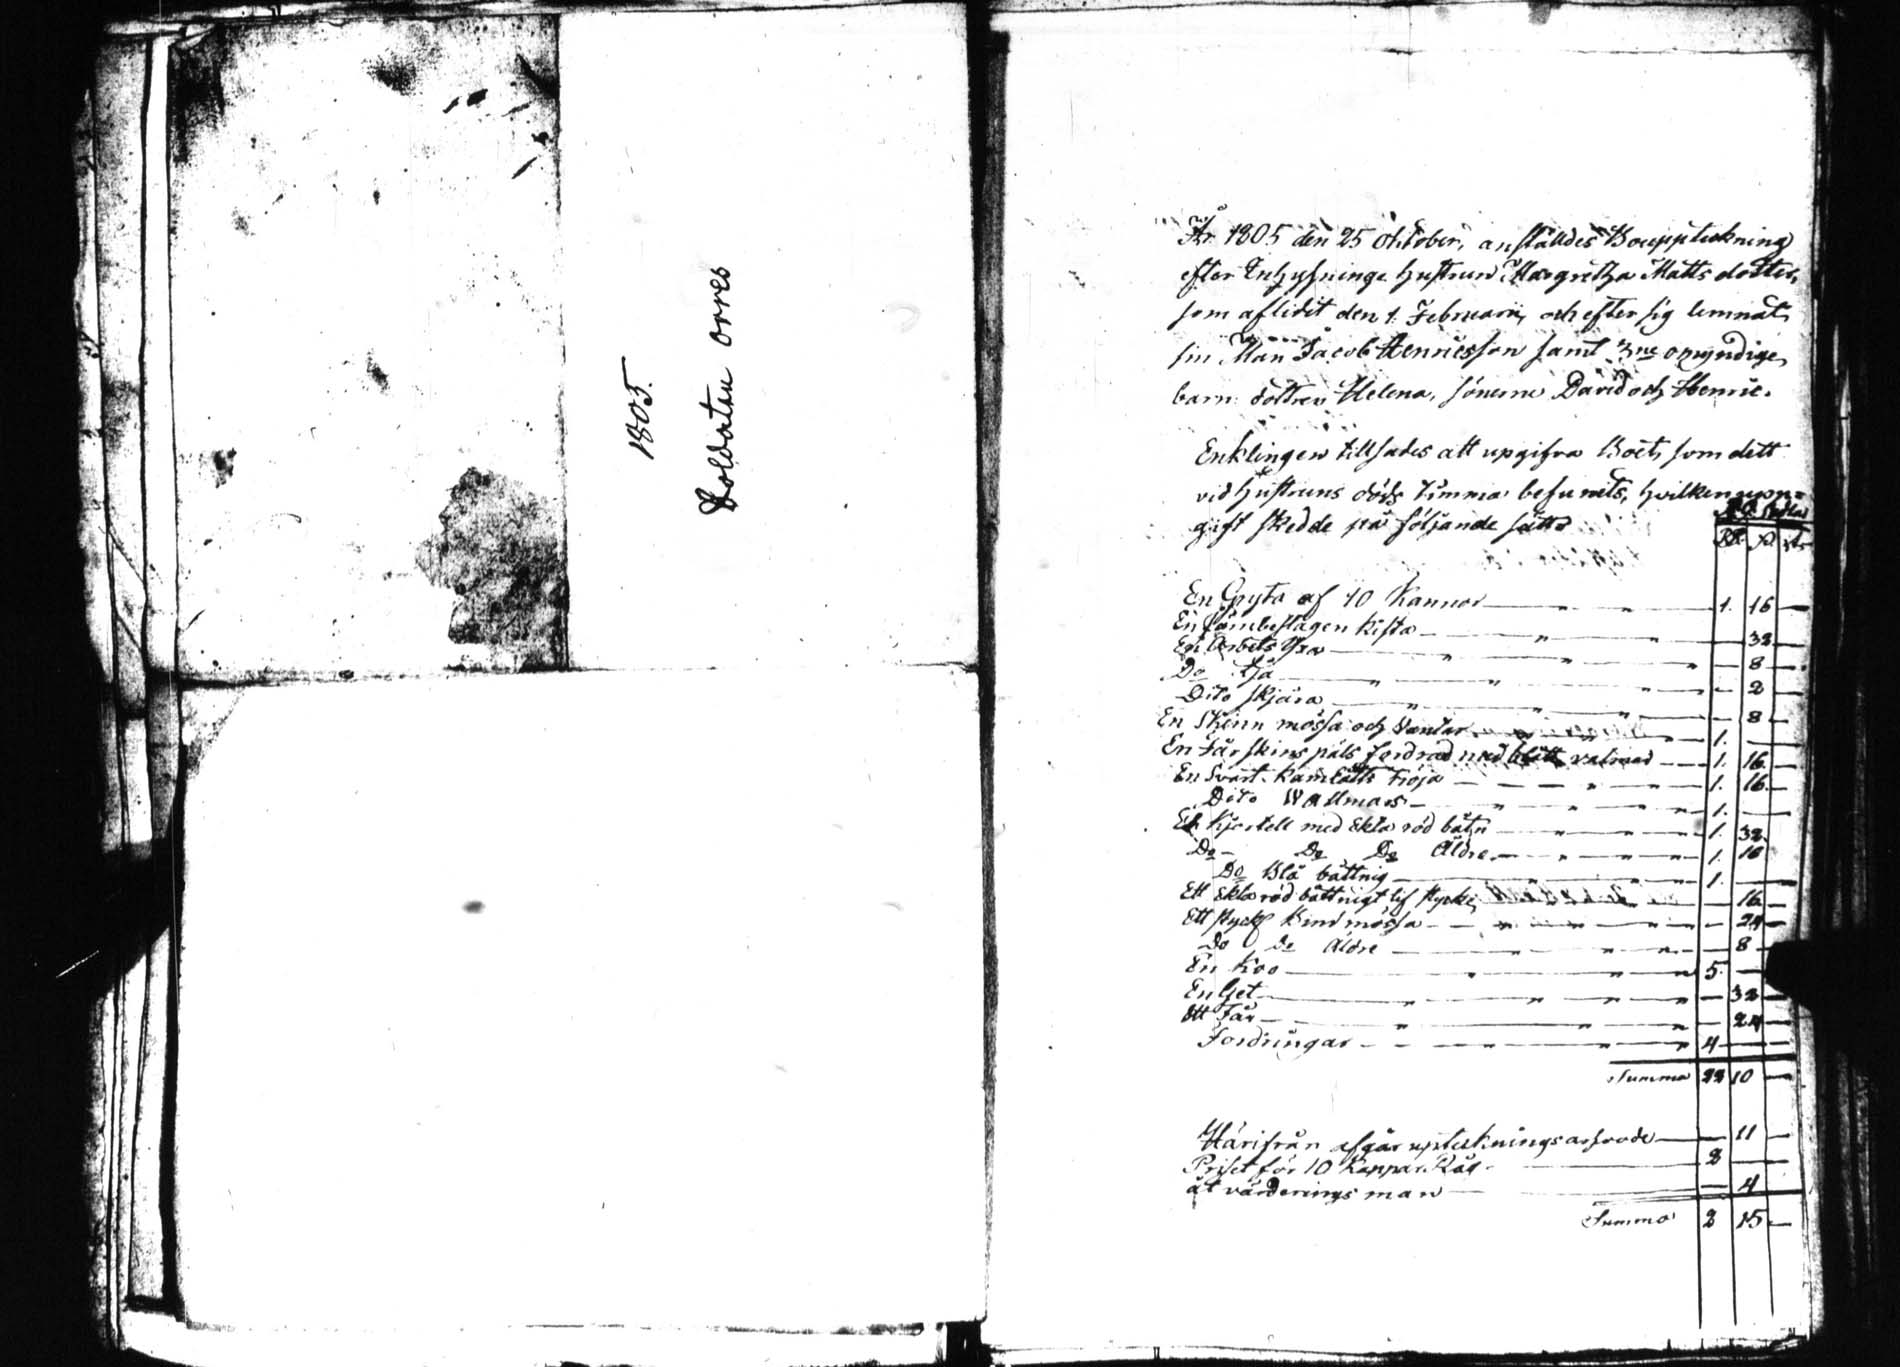 1805.
Soldaten orres
År 1805 den 25 Oktober, anstäldes Bouppteckning
efter Inhysninge hustrun Margretha Matts dotter,
som aflidit den 1. Februarii, och efter sig lemnat
sin Man Jacob Henricsson samt 3ne omyndige
barn: dottren Helena, sönerne David och Henric.
Enklingen tillsades att upgifva Boet, som dett
vid hustruns döds timma befunits, hvilken upp=
gift skedde på följande sätt
RD. sk. rst.
En Gryta af 10 Kannor 1. 16
En Järnbeslagen Kista 32
En Arbets Yxa 8
Do Lja 2
Dito skjära 8
En Skinn mössa och Vantar 1.
En Fårskins päls fordrad med blått valmad 1. 16
En Svart Kamlåtts Tröja 1. 16
Dito Wallmars 1.
En Kjortell med Ekta röd båtn 1. 32
Do Do Do Äldre 1. 16
Do Blå båttnig 1.
Ett Ekta röd båttnigt lif stycke 16
Ett styck Bind mössa 24
Do Do Äldre 8
En Koo 5.
En Get 32
Ett Får 24
Fordringar 4
Summa 22 10
Härifrån afgår uptecknings arfvode 11
Priset för 10 Kappar Råg 2
åt värderings man 4
Summa 2 15